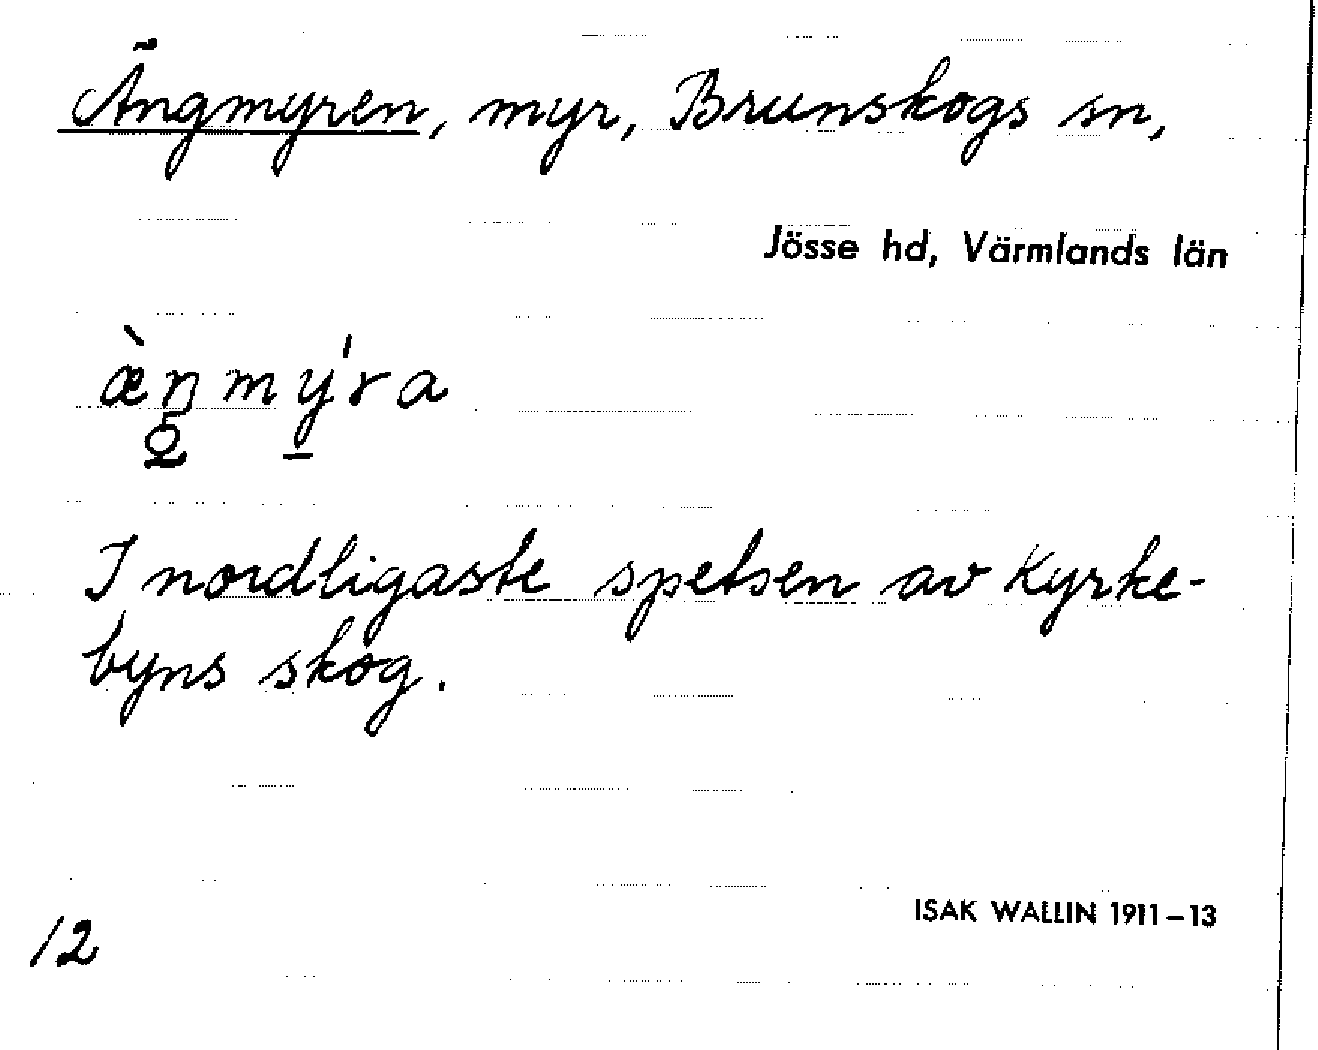 Ängmyren, myr, Brunskogs sn,
Jösse hd, Värmlands län
æ̀ŋmýra
2 –
I nordligaste spetsen av Kyrke-
byns skog.
ISAK WALLIN 1911–13
12